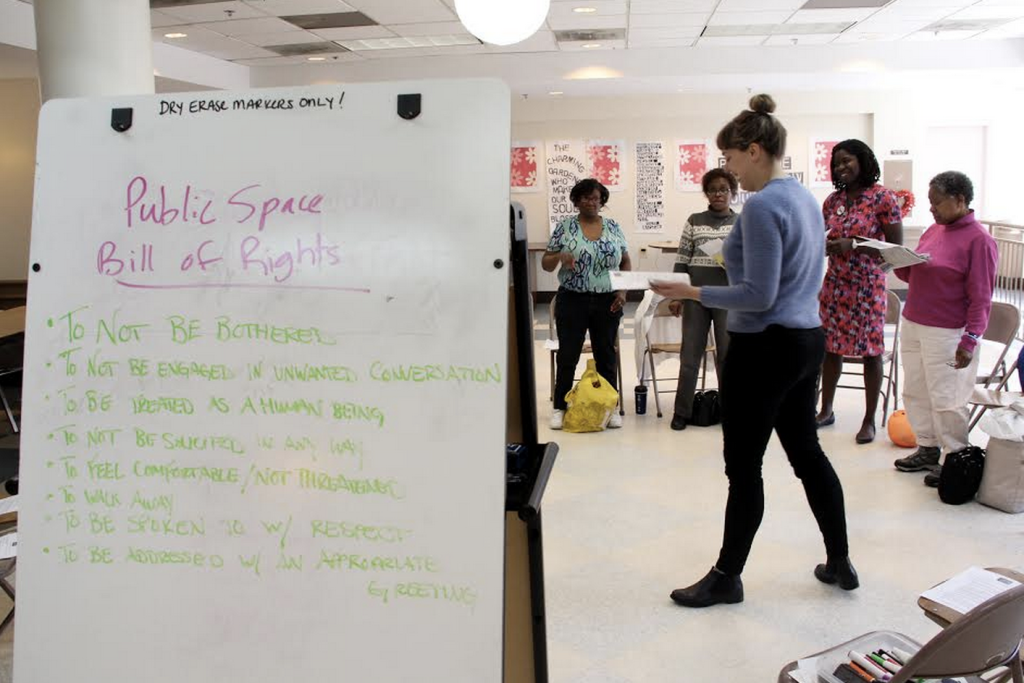 DRY ERASE MARKERS ONLY!
Public Space
Bill of Rights
• To NOT BE BOTHERED
• To NOT BE ENGAGED IN UNWANTED CONVERSATION
• To BE TREATED AS A HUMAN BEING
• To NOT BE SOLICITED IN ANY WAY
• To FEEL COMFORTABLE/NOT THREATENED
• To WALK AWAY
• To BE SPOKEN TO W/ RESPECT
• To BE ADDRESSED W/ AN APPROPRIATE
GREETING
THE
CHARMING
GARDENERS
WHO
MAKE
OUR
SOULS